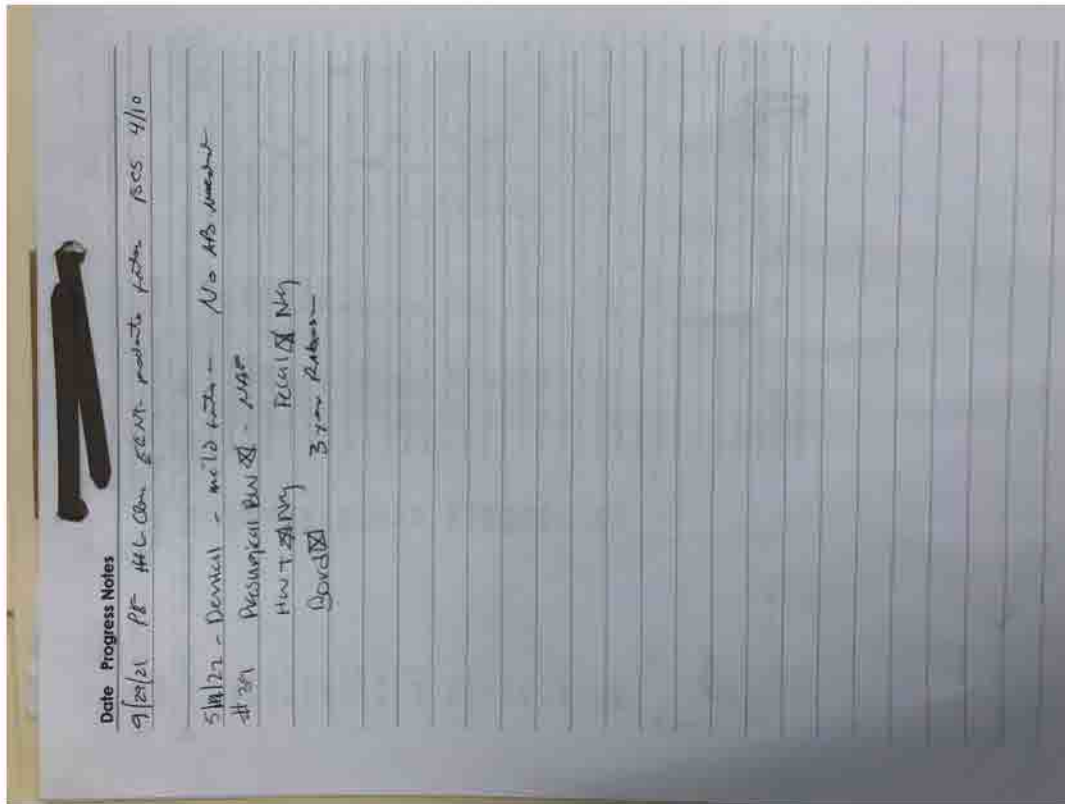 Date Progress Notes
9/29/21 PE H+L Clear EENT- moderate tartar BCS 4/10
5/ /22 - Dental - mild tartar - No AB needed
# 39 Presurgical BW ☒ - NAF
HWT ☒ Neg Fecal ☒ Neg
Bord ☒ 3 year Rabies